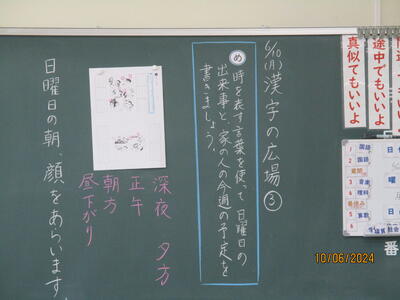 6/10(月) 漢字の広場③
め 時を表す言葉を使って、日曜日の
出来事と、家の人の今週の予定を
書きましょう。
深夜 夕方
正午
朝方
昼下がり
日曜日の朝、顔をあらいます。
途中でもいいよ
真似てもいいよ
1 国語
2 国語
業間
3 音楽
4 理科
昼休み
5 算数
6
日
曜
番
10/06/2024